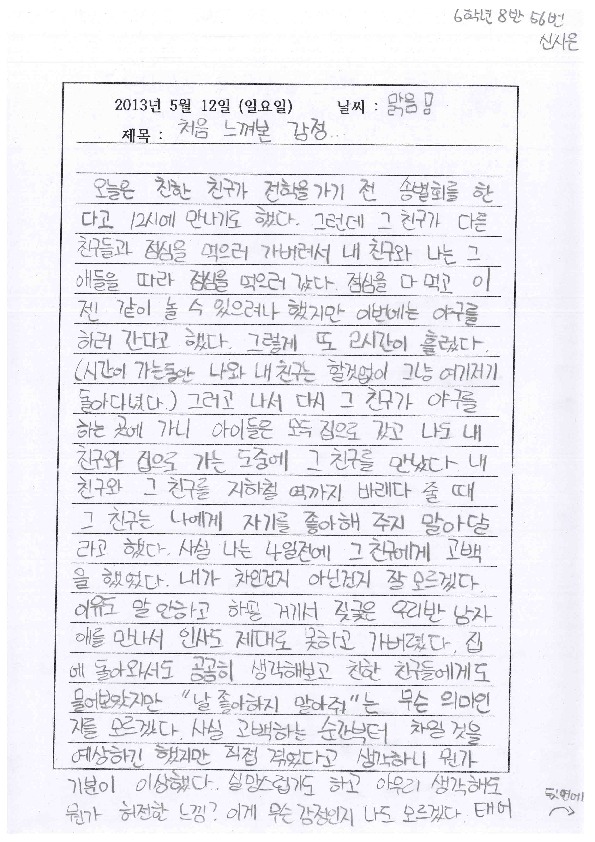 6학년 8반 56번
신시은
2013년 5월 12일 (일요일) 날씨 : 맑음
제목 : 처음 느껴본 감정...
오늘은 친한 친구가 전학을 가기 전 송별회를 한
다고 12시에 만나기로 했다. 그런데 그 친구가 다른
친구들과 점심을 먹으러 가버려서 내 친구와 나는 그
애들을 따라 점심을 먹으러 갔다. 점심을 다 먹고 이
젠 같이 놀 수 있으려나 했지만 이번에는 야구를
하러 간다고 했다. 그렇게 또 2시간이 흘렀다.
(시간이 가는동안 나와 내 친구는 할것없이 그냥 여기저기
돌아다녔다.) 그러고 나서 다시 그 친구가 야구를
하는 곳에 가니 아이들은 모두 집으로 갔고 나도 내
친구와 집으로 가는 도중에 그 친구를 만났다. 내
친구와 그 친구를 지하철 역까지 바래다 줄 때
그 친구는 나에게 자기를 좋아해 주지 말아달
라고 했다. 사실 나는 4일전에 그 친구에게 고백
을 했었다. 내가 차인건지 아닌건지 잘 모르겠다.
이유도 말 안하고 하필 거게서 짖궂은 우리반 남자
애를 만나서 인사도 제대로 못하고 가버렸다. 집
에 돌아와서도 곰곰히 생각해보고 친한 친구들에게도
물어보았지만 "날 좋아하지 말아줘"는 무슨 의미인
지를 모르겠다. 사실 고백하는 순간부터 차일 것을
예상하긴 했지만 직접 겪었다고 생각하니 뭔가
기분이 이상했다. 실망스럽기도 하고 아무리 생각해도
뭔가 허전한 느낌? 이게 무슨 감정인지 나도 모르겠다. 태어
뒷면에